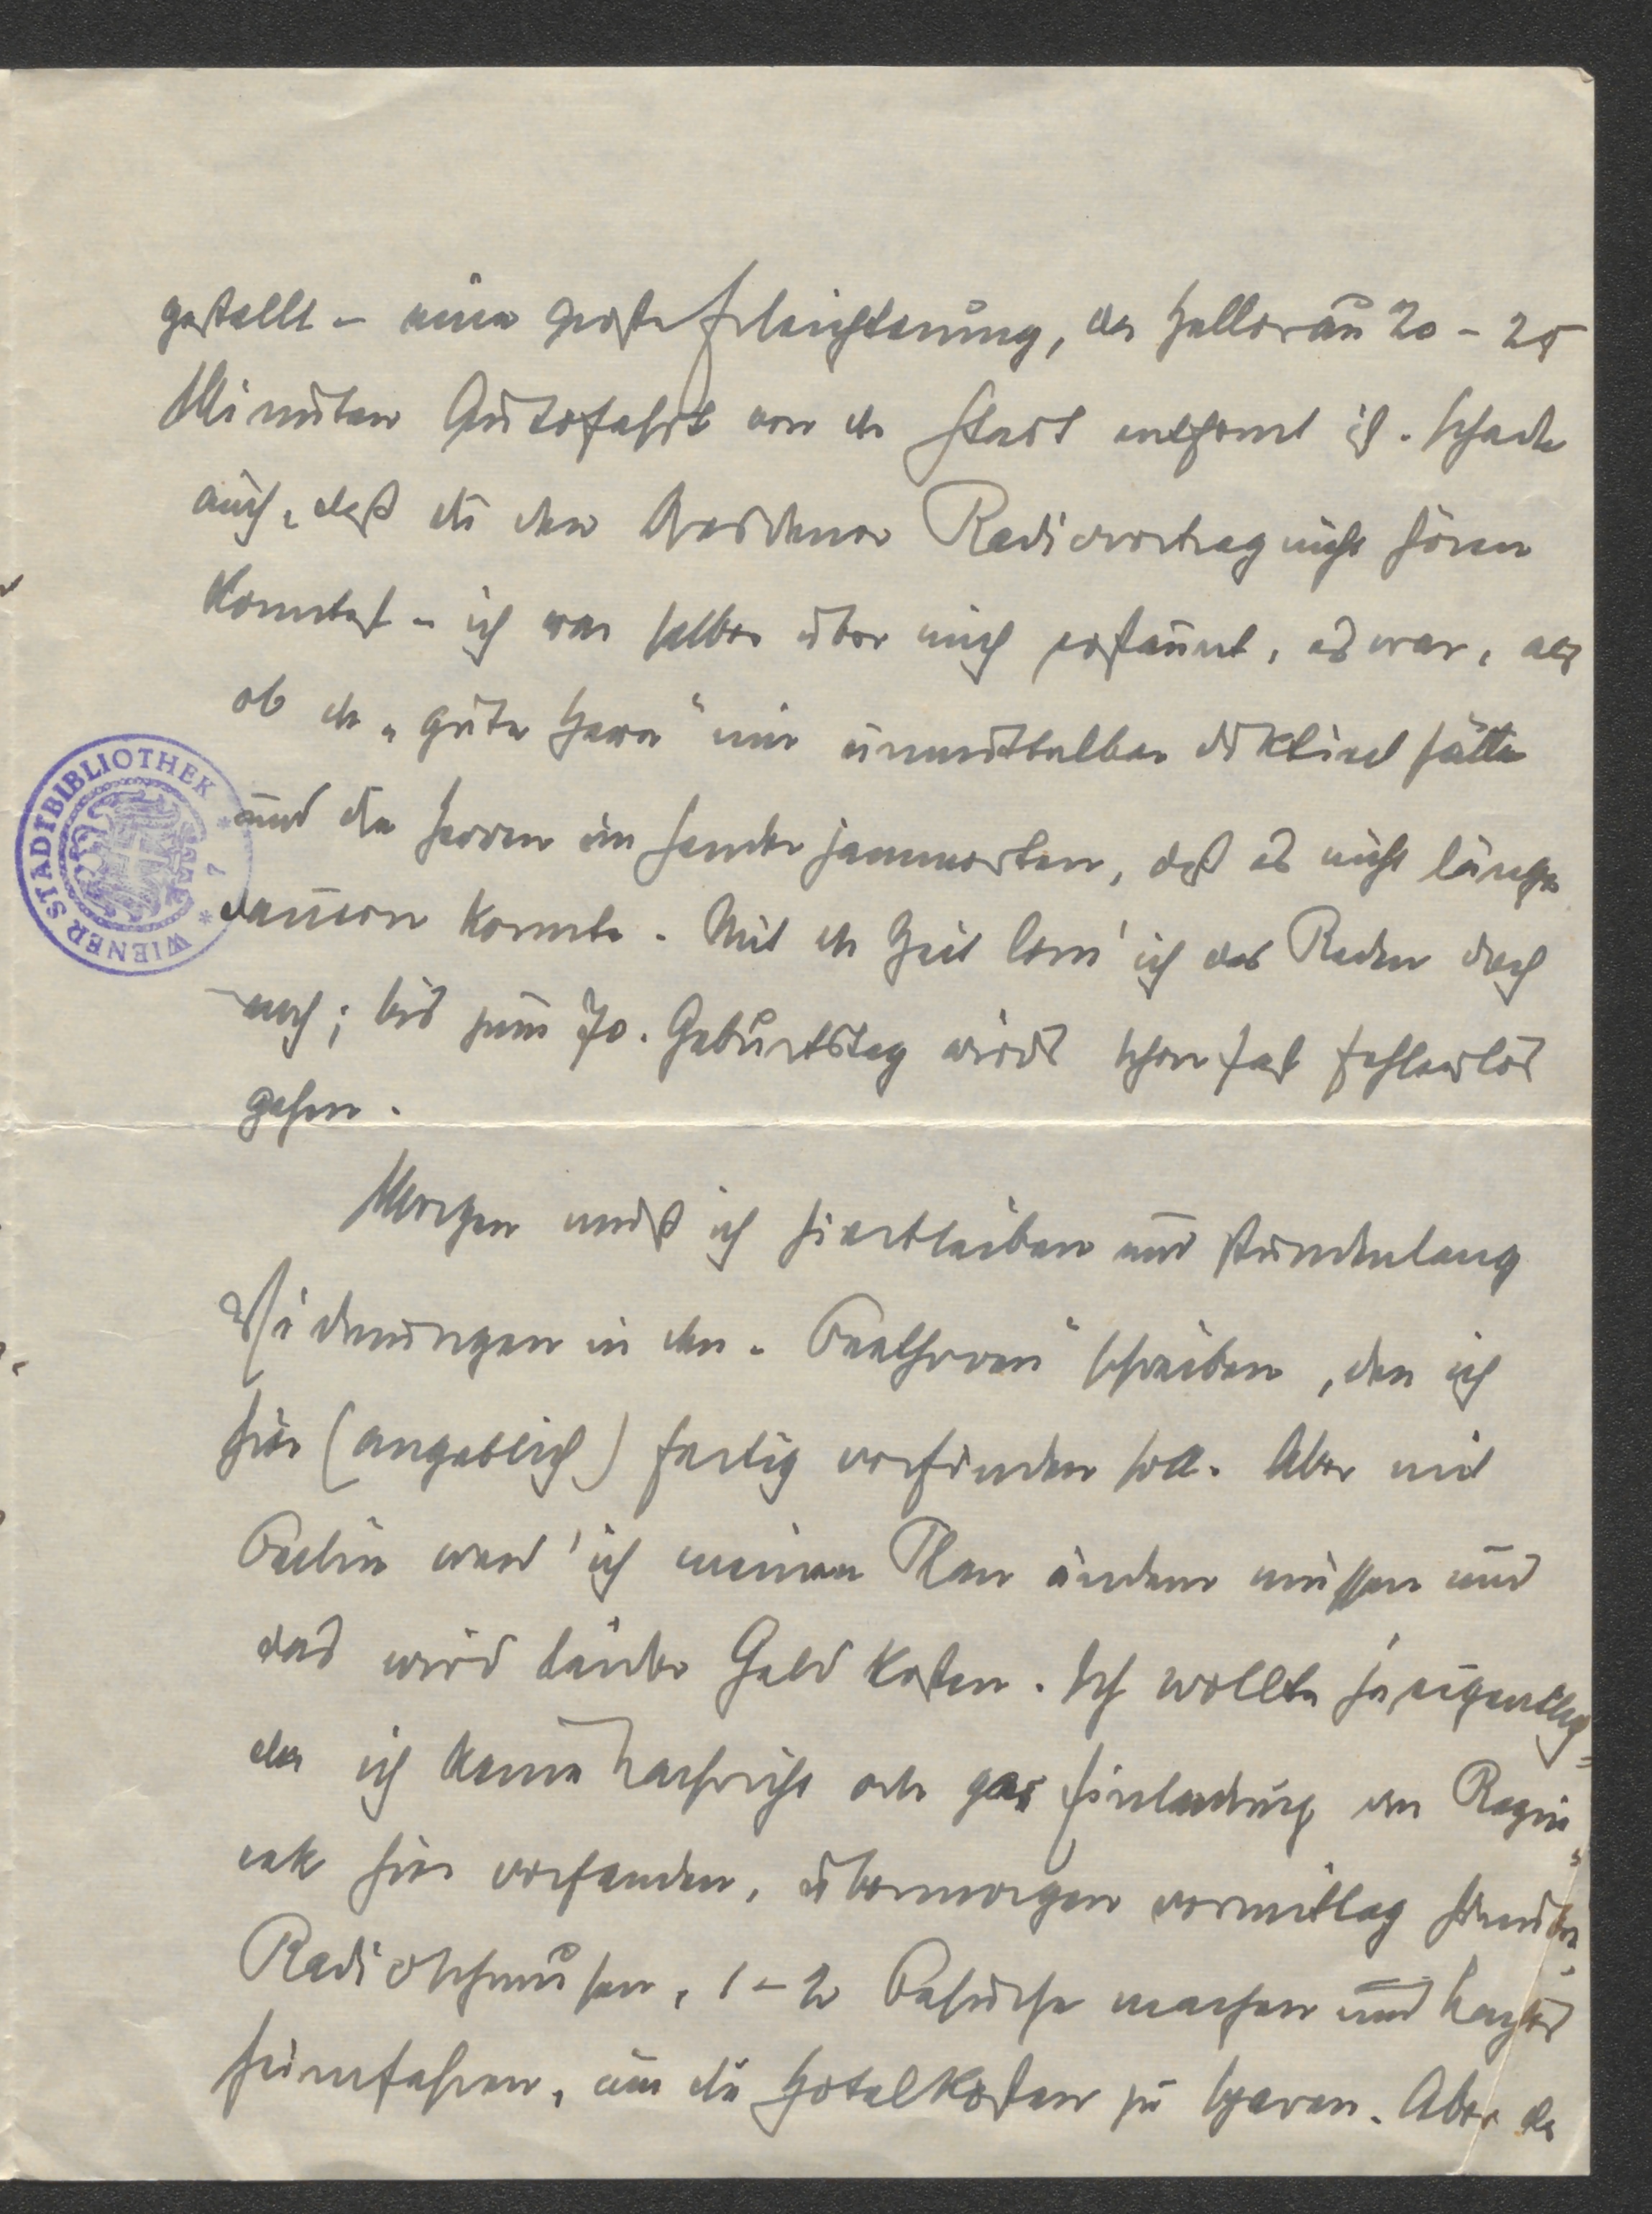 gestellt – eine große Erleichterung, da Hellerau 20 – 25
Minuten Autofahrt von der Stadt entfernt ist. Schade
auch, daß du den Dresdener Radiovortrag nicht hören
konntest – ich war selber über mich erstaunt, es war, als
ob der „gute Herr“ mir unmittelbar diktiert hätte
und die Herren im Sender jammerten, daß es nicht länger
dauern konnte. Mit der Zeit lern' ich das Reden doch
noch; bis zum 70. Geburtstag wirds schon fast fehlerlos
gehen.
Morgen muß ich hierbleiben und stundenlang
Widmungen in den „Beethoven“ schreiben, den ich
hier (angeblich) fertig vorfinden soll. Aber mit
Berlin werd' ich meinen Plan ändern müssen und
das wird Geld kosten. Ich wollte ja eigentlich,
da ich keine Nachricht oder gar Einladung von
hier vorfanden, übermorgen vormittag
Radio 1–2 Besuche machen und nachts
heimfahren, um die Hotelkosten zu sparen. Aber da
WIENER STADTBIBLIOTHEK * 7 *